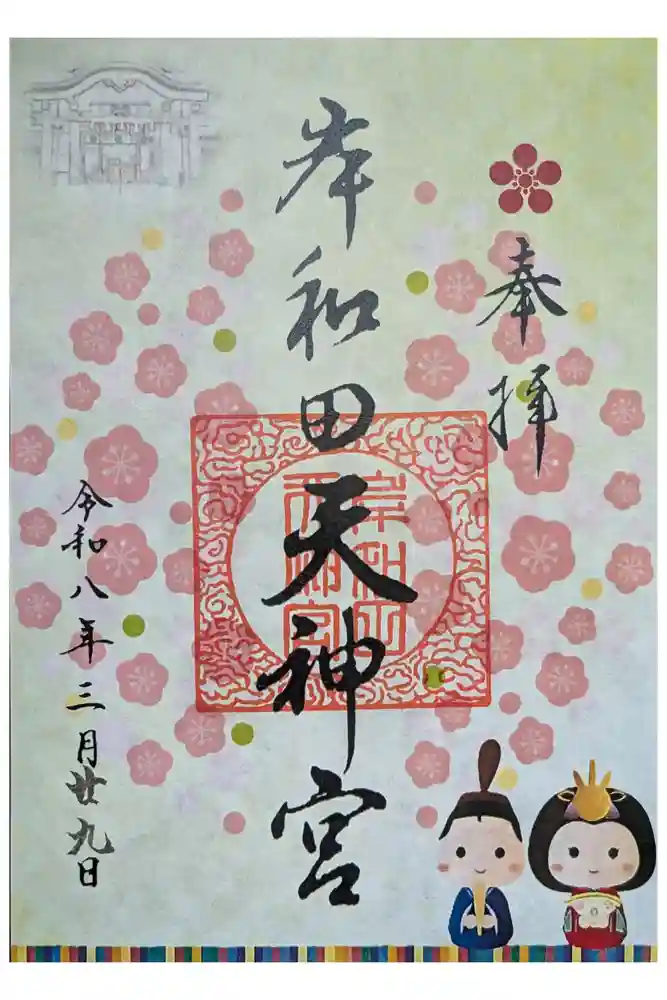 奉拝
岸和田天神宮
岸和田
天神宮
令和八年三月廿九日